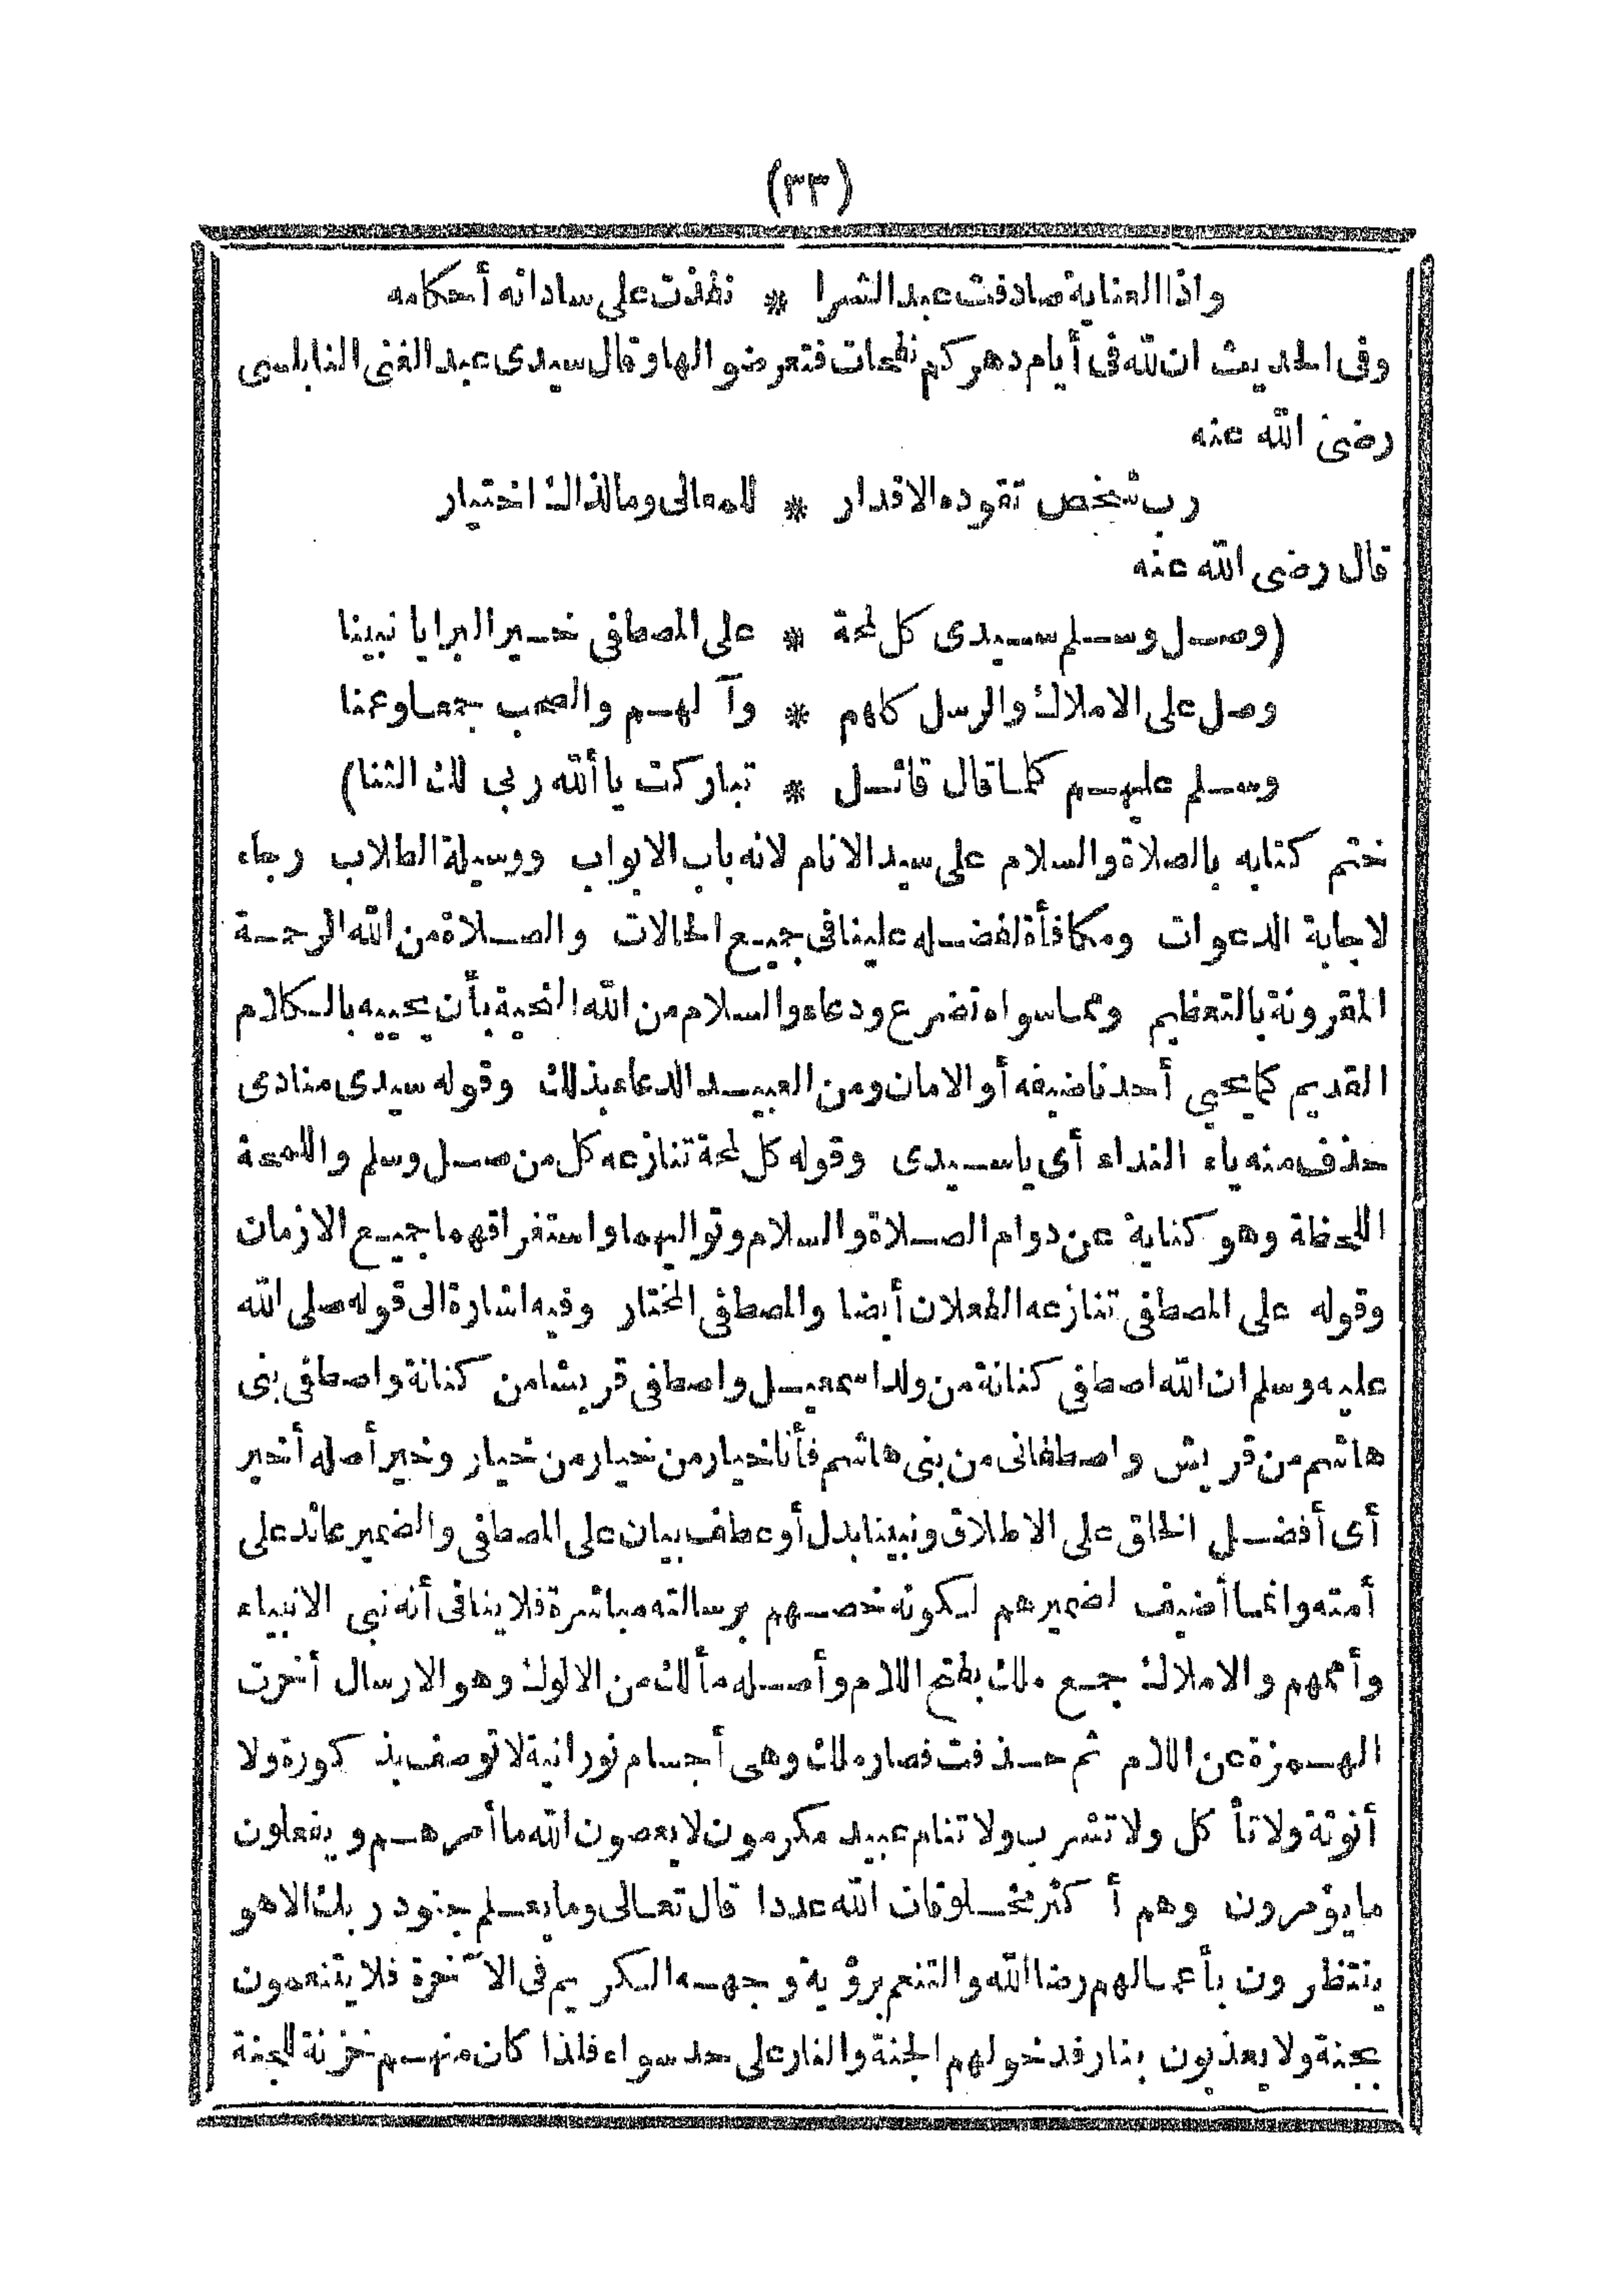 (٣٣)
واذا العناية صادفت عبد الشرا * نفذت على ساداته أحكامه
وفى الحديث ان لله فى أيام دهركم نفحات فتعرضوا لها وقال سيدى عبد الغنى النابلسى
رضى الله عنه
رب شخص تقوده الاقدار * للمعالى وما لذاك اختيار
قال رضى الله عنه
(وصل وسلم سيدى كل لمحة * على المصطفى خير البرايا نبينا
وصل على الاملاك والرسل كلهم * وآ لهم والصحب جمعا وعمنا
وسلم عليهم كلما قال قائل * تباركت يا ألله ربى لك الثنا)
ختم كتابه بالصلاة والسلام على سيد الانام لانه باب الابواب ووسيلة الطلاب رجاء
لاجابة الدعوات ومكافأة لفضله علينا فى جميع الحالات والصلاة من الله الرحمة
المقرونة بالتعظيم ومما سواه تضرع ودعاء والسلام من الله التحية بأن يحييه بالكلام
القديم كما يحيى أحدنا ضيفه أو الامان ومن العبيد الدعاء بذلك وقوله سيدى منادى
حذف منه ياء النداء أى يا سيدى وقوله كل لمحة تنازعه كل من صل وسلم واللمحة
اللحظة وهو كناية عن دوام الصلاة والسلام وتواليهما واستغراقهما جميع الازمان
وقوله على المصطفى تنازعه الفعلان أيضا والمصطفى المختار وفيه اشارة الى قوله صلى الله
عليه وسلم ان الله اصطفى كنانة من ولد اسمعيل واصطفى قريشا من كنانة واصطفى بنى
هاشم من قريش واصطفانى من بنى هاشم فأنا خيار من خيار من خيار وخير أصله أخير
أى أفضل الخلق على الاطلاق ونبينا بدل أو عطف بيان على المصطفى والضمير عائد على
أمته وانما أضيف لضميرهم لكونه خصهم برسالته مباشرة فلا ينافى أنه نبى الانبياء
وأممهم والاملاك جمع ملك بفتح اللام وأصله مألك من الالوك وهو الارسال أخرت
الهمزة عن اللام ثم حذفت فصار ملك وهى أجسام نورانية لا توصف بذكورة ولا
أنوثة ولا تأكل ولا تشرب ولا تنام عبيد مكرمون لا يعصون الله ما أمرهم ويفعلون
ما يؤمرون وهم أكثر مخلوقات الله عددا قال تعالى وما يعلم جنود ربك الا هو
ينتظرون بأعمالهم رضا الله والتنعم برؤية وجهه الكريم فى الآخرة فلا يتنعمون
بجنة ولا يعذبون بنار فدخولهم الجنة والنار على حد سواء فلذا كان منهم خزنة للجنة